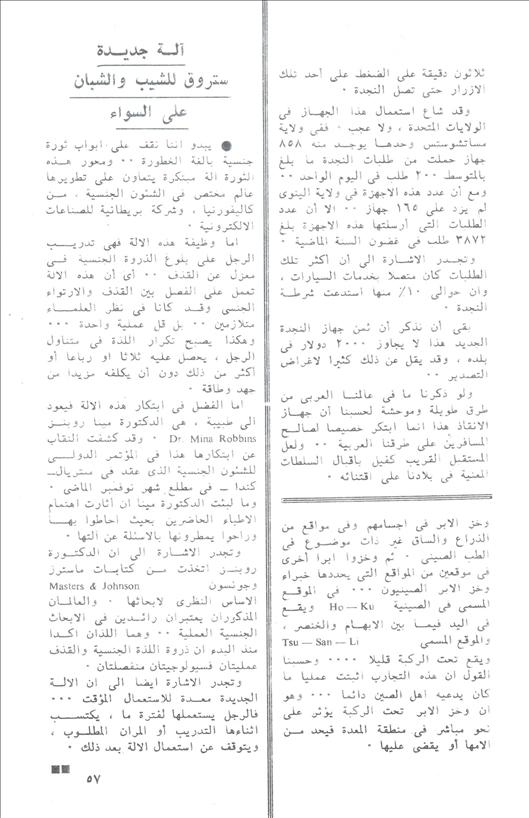 ثلاثون دقيقة على الضغط على أحد تلك
الازرار حتى تصل النجدة ٠
وقد شاع استعمال هذا الجهاز فى
الولايات المتحدة ، ولا عجب ٠ ففى ولاية
مساتشوستس وحدها يوجد منه ٨٥٨
جهاز حملت من طلبات النجدة ما بلغ
بالمتوسط ٢٠٠ طلب فى اليوم الواحد ٠٠
ومع أن عدد هذه الاجهزة فى ولاية الينوى
لم يزد على ١٦٥ جهاز ٠٠ الا أن عدد
الطلبات التى أرسلتها هذه الاجهزة بلغ
٣٨٧٢ طلب فى غضون السنة الماضية ٠
وتجدر الاشارة الى أن أكثر تلك
الطلبات كان متصلا بخدمات السيارات ،
وان حوالى ١٠٪ منها استدعت شرطة
النجدة ٠
بقى أن نذكر أن ثمن جهاز النجدة
الجديد هذا لا يجاوز ٢٠٠٠ دولار فى
بلده ، وقد يقل عن ذلك كثيرا لاغراض
التصدير ٠٠
ولو ذكرنا ما فى عالمنا العربى من
طرق طويلة وموحشة لحسبنا أن جهاز
الانقاذ هذا انما ابتكر خصيصا لصالح
المسافرين على طرقنا العربية ٠٠ ولعل
المستقبل القريب كفيل باقبال السلطات
المعنية فى بلادنا على اقتنائه ٠
وخز الابر فى اجسامهم وفى مواقع من
الذراع والساق غير ذات موضوع فى
الطب الصينى ٠ ثم وخزوا ابرا أخرى
فى موقعين من المواقع التى يحددها خبراء
وخز الابر الصينيون ٠٠٠ فى الموقع
المسمى فى الصينية Ho — Ku ويقع
فى اليد فيما بين الابهام والخنصر ،
والموقع المسمى Tsu — San — Li
ويقع تحت الركبة قليلا ٠٠٠٠ وحسبنا
القول ان هذه التجارب اثبتت عمليا ما
كان يدعيه اهل الصين دائما ٠٠٠ وهو
ان وخز الابر تحت الركبة يؤثر على
نحو مباشر فى منطقة المعدة فيحد من
الامها أو يقضى عليها ٠
آلة جديدة
ستروق للشيب والشبان
على السواء
● يبدو اننا نقف على ابواب ثورة
جنسية بالغة الخطورة ٠٠ ومحور هذه
الثورة الة مبتكرة يتعاون على تطويرها
عالم مختص فى الشئون الجنسية ، من
كاليفورنيا ، وشركة بريطانية للصناعات
الالكترونية ٠
اما وظيفة هذه الالة فهى تدريب
الرجل على بلوغ الذروة الجنسية فى
معزل عن القذف ٠٠ أى أن هذه الالة
تعمل على الفصل بين القذف والارتواء
الجنسى وقد كانا فى نظر العلماء
متلازمين ٠٠ بل قل عملية واحدة ٠٠٠
وهكذا يصبح تكرار اللذة فى متناول
الرجل ، يحصل عليه ثلاثا او رباعا أو
أكثر من ذلك دون أن يكلفه مزيدا من
جهد وطاقة ٠
اما الفضل فى ابتكار هذه الالة فيعود
الى طبيبة ، هى الدكتورة مينا روبنز
Dr. Mina Robbins ٠ وقد كشفت النقاب
عن ابتكارها هذا فى المؤتمر الدولى
للشئون الجنسية الذى عقد فى منتريال ـ
كندا ـ فى مطلع شهر نوفمبر الماضى ٠
وما لبثت الدكتورة مينا ان أثارت اهتمام
الاطباء الحاضرين بحيث احاطوا بها
وراحوا يمطرونها بالاسئلة عن ألتها ٠
وتجدر الاشارة الى ان الدكتورة
روبنز اتخذت من كتابات ماسترز
وجونسون Masters & Johnson
الاساس النظرى لابحاثها ٠ والعالمان
المذكوران يعتبران رائدين فى الابحاث
الجنسية العملية ٠٠ وهما اللذان اكدا
منذ البدء ان ذروة اللذة الجنسية والقذف
عمليتان فسيولوجيتان منفصلتان ٠
وتجدر الاشارة ايضا الى ان الالة
الجديدة معدة للاستعمال المؤقت ٠٠٠
فالرجل يستعملها لفترة ما ، يكتسب
اثناءها التدريب أو المران المطلوب ،
ويتوقف عن استعمال الالة بعد ذلك ٠
٥٧